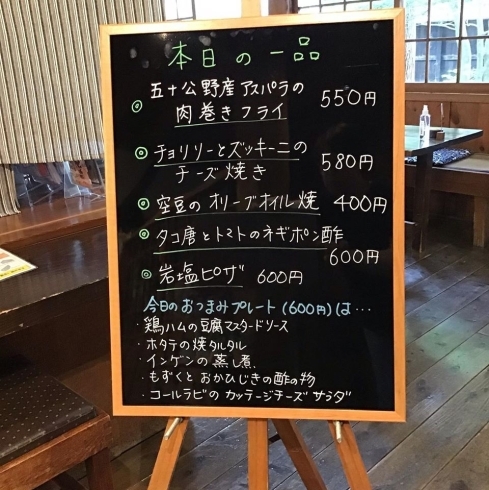 本日の一品
◎ 五十公野産アスパラの
肉巻きフライ 550円
◎ チョリソーとズッキーニの
チーズ焼き 580円
◎ 空豆のオリーブオイル焼 400円
◎ タコ唐とトマトのネギポン酢
600円
◎ 岩塩ピザ 600円
今日のおつまみプレート(600円)は…
・鶏ハムの豆腐マスタードソース
・ホタテの焼タルタル
・インゲンの蒸し煮
・もずくとおかひじきの酢の物
・コールラビのカッテージチーズサラダ